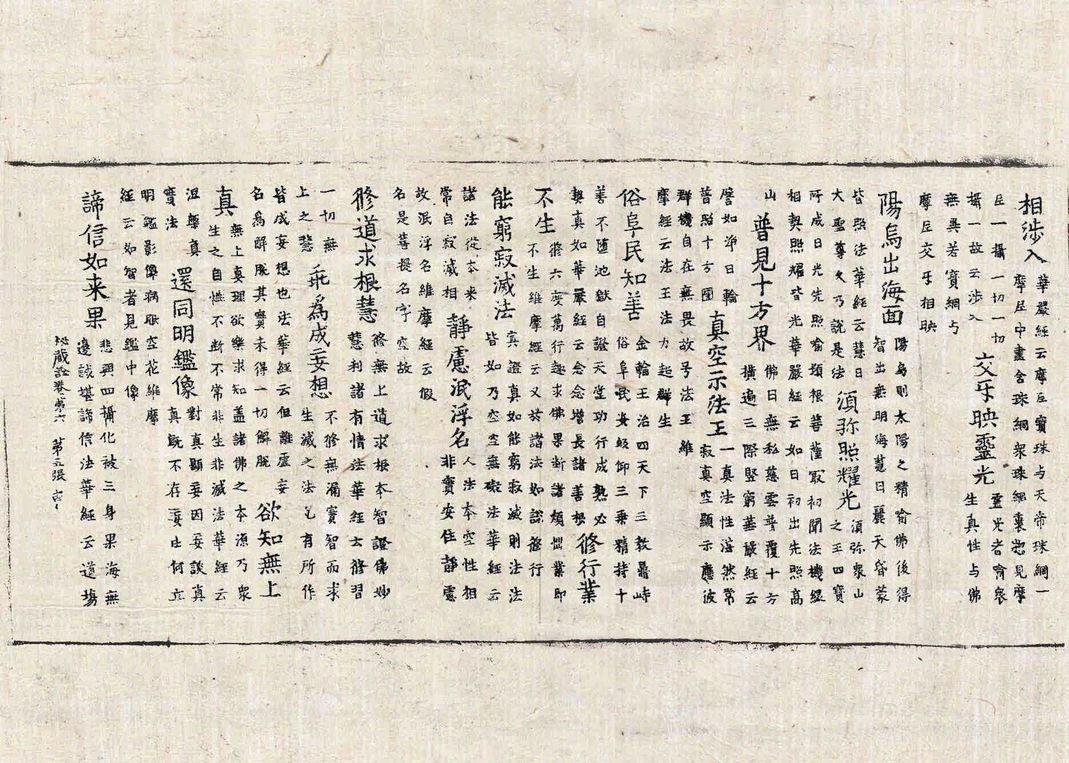 相渉入
華嚴經云摩尼寶珠与天帝珠綱一
摩尼中盡含珠綱衆珠綱裏惣見摩
尼一攝一切一切
攝一故云渉入
交牙映靈光
靈光者喻衆
生真性与佛
無異若寶綱与
摩尼交牙相映
陽烏出海面
陽烏則太陽之精喻佛後得
智出無明海慧日麗天昏蒙
皆照法華經云慧日
大聖尊久乃說是法
須弥照耀光
須弥衆山
之王四寶
所成日光先照喻頓根菩薩最初聞法機經
相契照耀皆光華嚴經云如日初出先照高
山
普見十方界
佛日無私慈雲普覆十方
橫遍三際竪窮華嚴經云
譬如浄日輪
普照十方國
真空示法王
一真法性湛然常
寂真空顯示應彼
群機自在無畏故号法王維
摩經云法王法力超群生
俗阜民知善
金輪王治四天下三教㬪峙
俗阜民安欽仰三乗精持十
善不墮地獄自證天堂功行成熟必
契真如華嚴經云念念增長諸善根
修行業
不生
修六度萬行趣求佛果斷諸煩惱業即
不生維摩經云又於諸法如說修行
能窮寂滅法
真證真如能窮寂滅則法法
皆如乃空空無礙法華經云
諸法從本来
常自寂滅相
靜慮泯浮名
人人法本空性相
非實安住靜慮
故泯浮名維摩經云假
名是菩提名字空故
修道求根慧
修無上道求根本智證佛妙
慧利諸有情法華經云修習
一切無
上之慧
乖為成妄想
不修無漏實智而求
生滅之法乞有所作
皆成妄想也法華經云但離虛妄
名為解脫其實未得一切解脫
欲知無上
真
無上真理欲樂求知盖諸佛之本源乃衆
生之自性不斷不常非生非滅法華經云
涅槃真
實法
還同明鑑像
對真顯妄因妄談真
真既不存妄亦何立
明鑑影像病眼空花維摩
經云如智者見鑑中像
諦信如来果
悲興四攝化被三身果海無
邊談堪諦信法華經云道場
秘藏詮卷第六 第五張